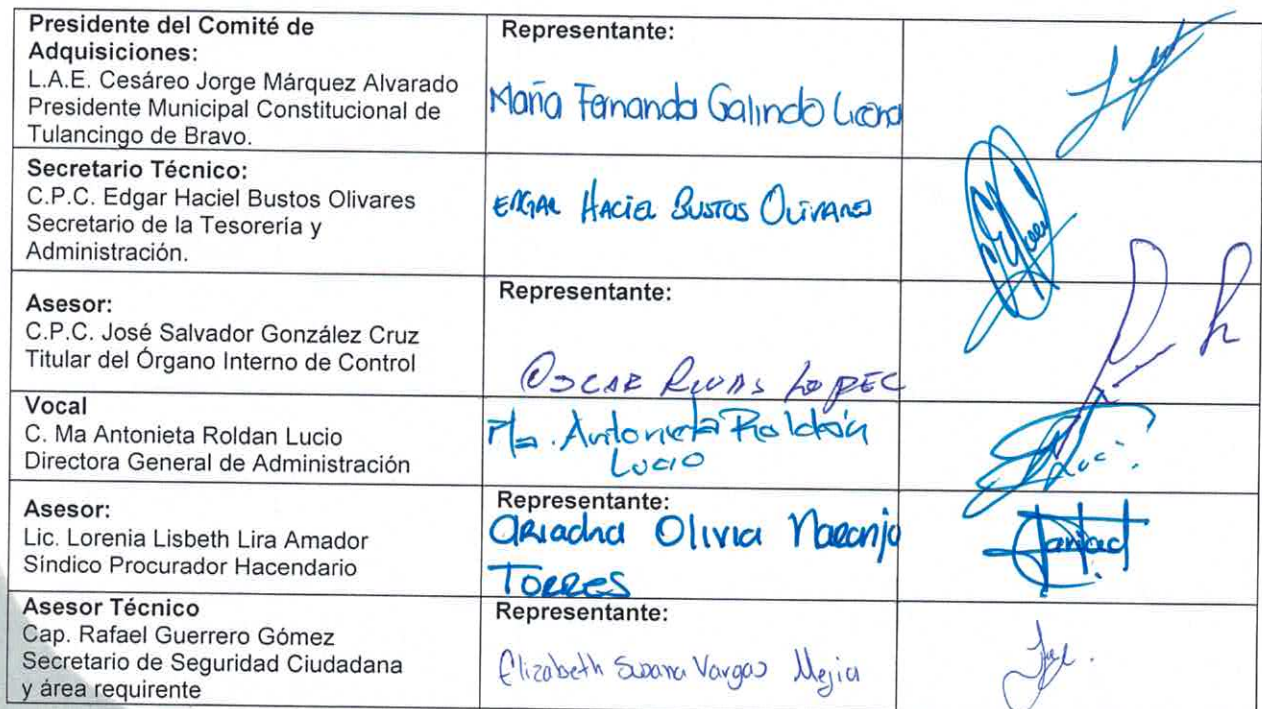 Presidente del Comité de
Adquisiciones:
L.A.E. Cesáreo Jorge Márquez Alvarado
Presidente Municipal Constitucional de
Tulancingo de Bravo.
Representante:
María Fernanda Galindo Licona
Secretario Técnico:
C.P.C. Edgar Haciel Bustos Olivares
Secretario de la Tesorería y
Administración.
EDGAR HACIEL BUSTOS OLIVARES
Asesor:
C.P.C. José Salvador González Cruz
Titular del Órgano Interno de Control
Representante:
OSCAR RIVAS LOPEZ
Vocal
C. Ma Antonieta Roldan Lucio
Directora General de Administración
Ma. Antonieta Roldán
Lucio
Asesor:
Lic. Lorenia Lisbeth Lira Amador
Síndico Procurador Hacendario
Representante:
Ariadna Olivia Naranjo
TORRES
Asesor Técnico
Cap. Rafael Guerrero Gómez
Secretario de Seguridad Ciudadana
y área requirente
Representante:
Elizabeth Susana Vargas Mejia